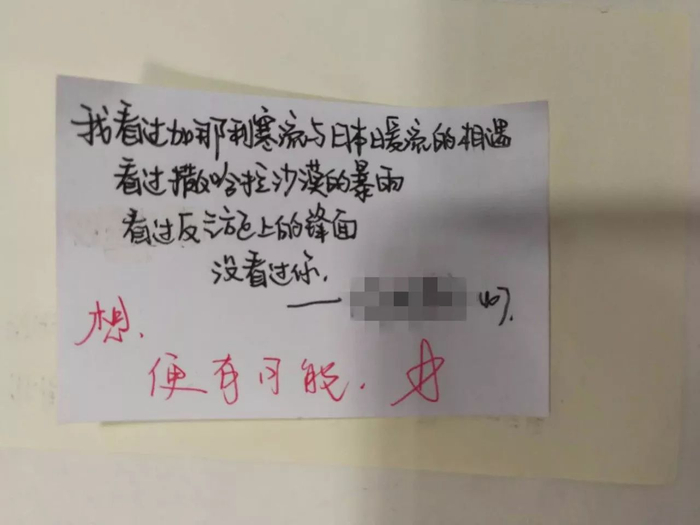 我看过加那利寒流与日本暖流的相遇
看过撒哈拉沙漠的暴雨
看过反气旋上的锋面
没看过你.
——
想,
便有可能.